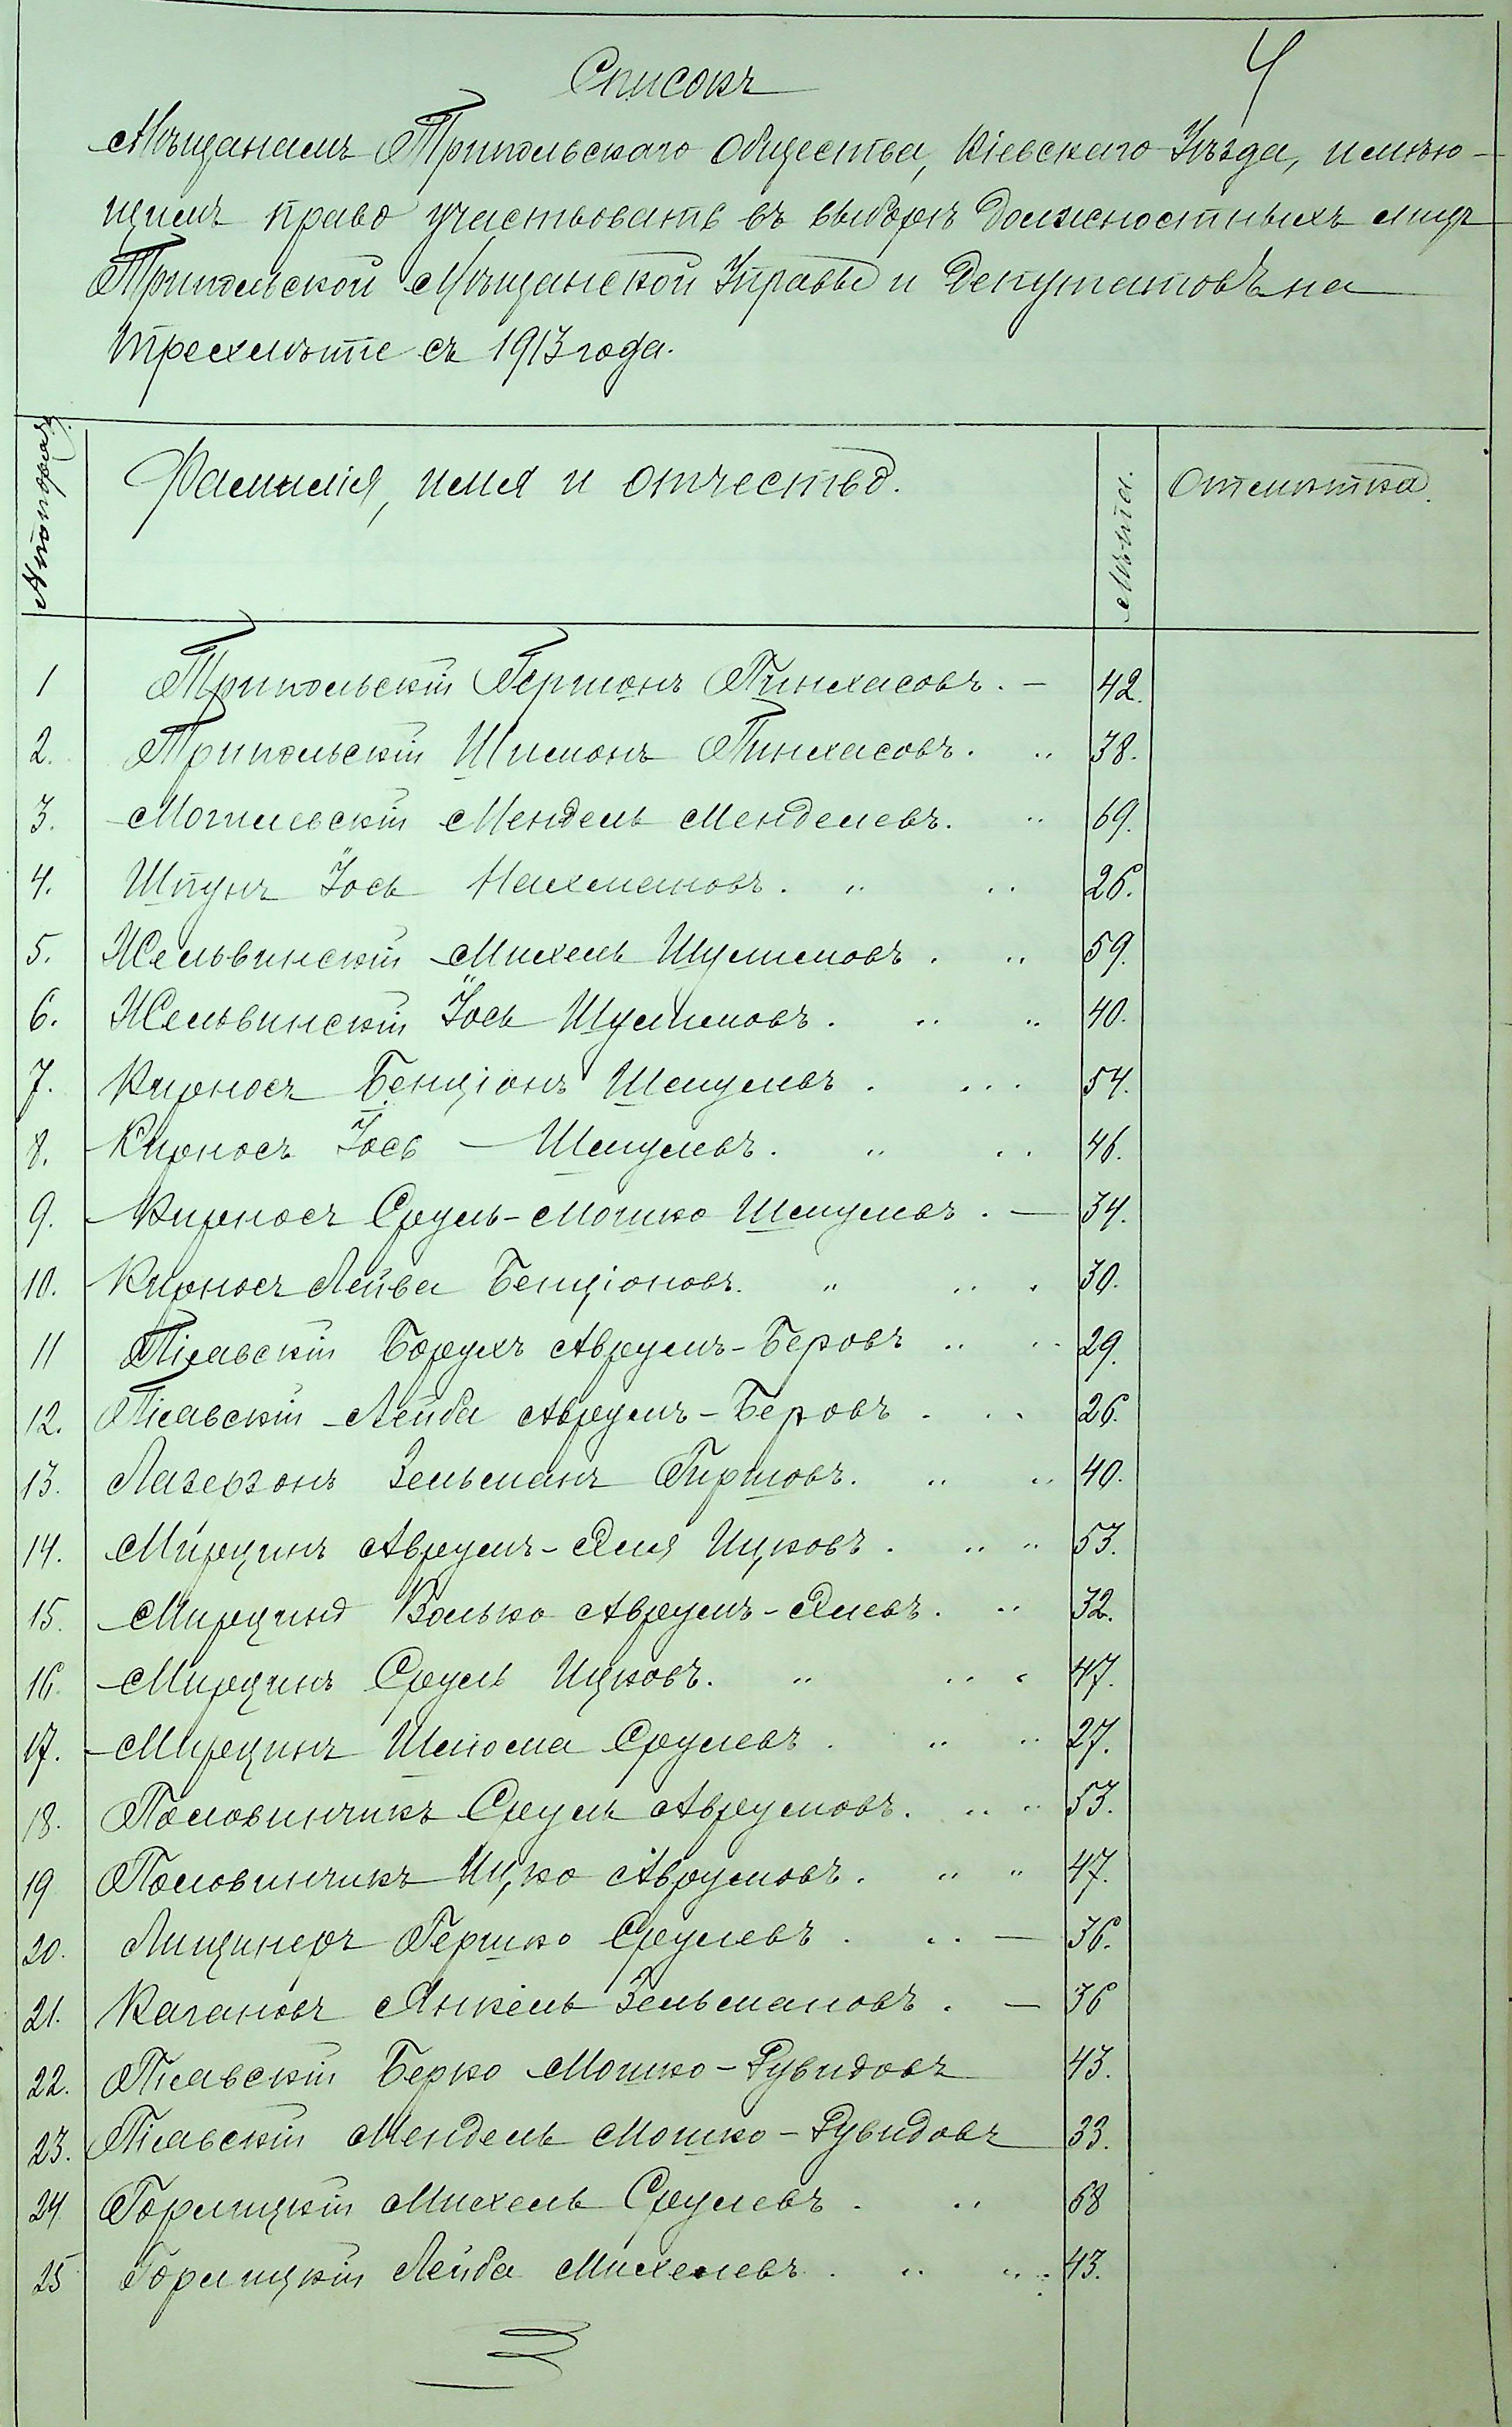 4
Списокъ
Мѣщанамъ Трипольскаго Общества, Кіевскаго Уѣзда, имѣю-
щимъ право участвовать въ выборѣ должностныхъ лицъ
Трипольской Мѣщанской Управы и Депутатовъ на
трехлѣтіе съ 1913 года.
Фамилія, имя и отчество. Лѣта. Отмѣтка.
1 Трипольскій Гершонъ Пинхасовъ. — 42.
2. Трипольскій Шимонъ Пинхасовъ. „ 38.
3. Могилевскій Мендель Менделевъ. „ 69.
4. Шпунъ Іось Нахмановъ. „ „ 26.
5. Жельвинскій Михель Шулимовъ. „ 59.
6. Жельвинскій Іось Шулимовъ. „ „ 40.
7. Кирносъ Бенціонъ Шмулевъ. ... 54.
8. Кирносъ Іось — Шмулевъ. „ .. 46.
9. Кирносъ Сруль-Мошко Шмулевъ. — 34.
10. Кирносъ Лейба Бенціоновъ. „ .. . 30.
11 Пісавскій Борухъ Аврумъ-Беровъ .. .. 29.
12. Пісавскій Лейба Аврумъ-Беровъ . .. 26.
13. Лазерзонъ Зельманъ Гиршовъ. „ „ 40.
14. Мирцинъ Аврумъ-Эля Ицковъ. „ „ 53.
15. Мирцинъ Волько Аврумъ-Элевъ. „ 32.
16. Мирцинъ Сруль Ицковъ. „ .. . 47.
17. Мирцинъ Шлома Срулевъ. „ „ 27.
18. Половинчикъ Сруль Аврумовъ. „ „ 53.
19 Половинчикъ Ицко Аврумовъ. „ „ 47.
20. Лищинеръ Гершко Срулевъ . .. — 36.
21. Кагановъ Янкель Зельмановъ. — 36
22. Пісавскій Берко Мошко-Рувидовъ 43.
23. Пісавскій Мендель Мошко-Рувидовъ 33.
24 Горлицкій Михель Срулевъ. „ 68
25 Горлицкій Лейба Михелевъ. „ „ 43.